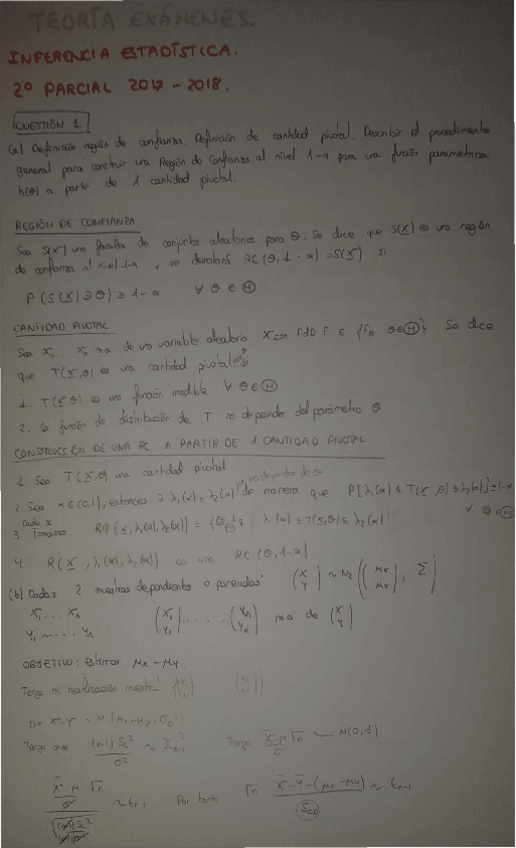 TEORÍA EXÁMENES.
INFERENCIA ESTADÍSTICA.
2º PARCIAL 2017 - 2018.
CUESTIÓN 1
(a) Definición región de confianza. Definición de cantidad pivotal. Describir el procedimiento
general para construir una Región de Confianza al nivel 1-α para una función paramétrica
h(θ) a partir de 1 cantidad pivotal.
REGIÓN DE CONFIANZA
Sea S(X) una familia de conjuntos aleatorios para θ. Se dice que S(X) es una región
de confianza al nivel 1-α y se denotará RC (θ, 1-α) = S(X) si
P(S(X)∋θ) ≥ 1-α ∀ θ ∈ Θ
CANTIDAD PIVOTAL
Sea X₁ ... Xn m.a de una variable aleatoria X con F ∈ {Fθ θ∈Θ} Se dice
que T(X,θ) es una cantidad pivotal si
1. T(X,θ) es una función medible ∀ θ∈Θ
2. la función de distribución de T no depende del parámetro θ
CONSTRUCCIÓN DE UNA RC A PARTIR DE 1 CANTIDAD PIVOTAL
1. Sea T(X,θ) una cantidad pivotal
2. Sea α∈(0,1), entonces ∃ λ₁(α) y λ₂(α) no dependen de θ de manera que P[λ₁(α) ≤ T(X,θ) ≤ λ₂(α)] = 1-α ∀ θ∈Θ
Dada X
3. Tomamos R(X, λ₁(α), λ₂(α)) = {θ∈Θ λ₁(α) ≤ T(X,θ) ≤ λ₂(α)}
4. R(X, λ₁(α), λ₂(α)) es una RC (θ, 1-α)
(b) Dadas 2 muestras dependientes o pareadas (X Y) ~ N₂((μx μy), Σ)
X₁ ... Xn (X₁ Y₁) ..... (Xn Yn) m.a de (X Y)
Y₁ ... Yn
OBJETIVO: Estimar μx - μy.
Tengo mi realización muestral
D = X-Y ~ N(μx-μy, σD²)
Tengo que (n-1) Sc²/σ² ~ χ²n-1 Tengo X̄-μ/σ √n ~ N(0,1)
~ tn-1 Por tanto √n X̄-Ȳ-(μx-μy)/Scd ~ tn-1